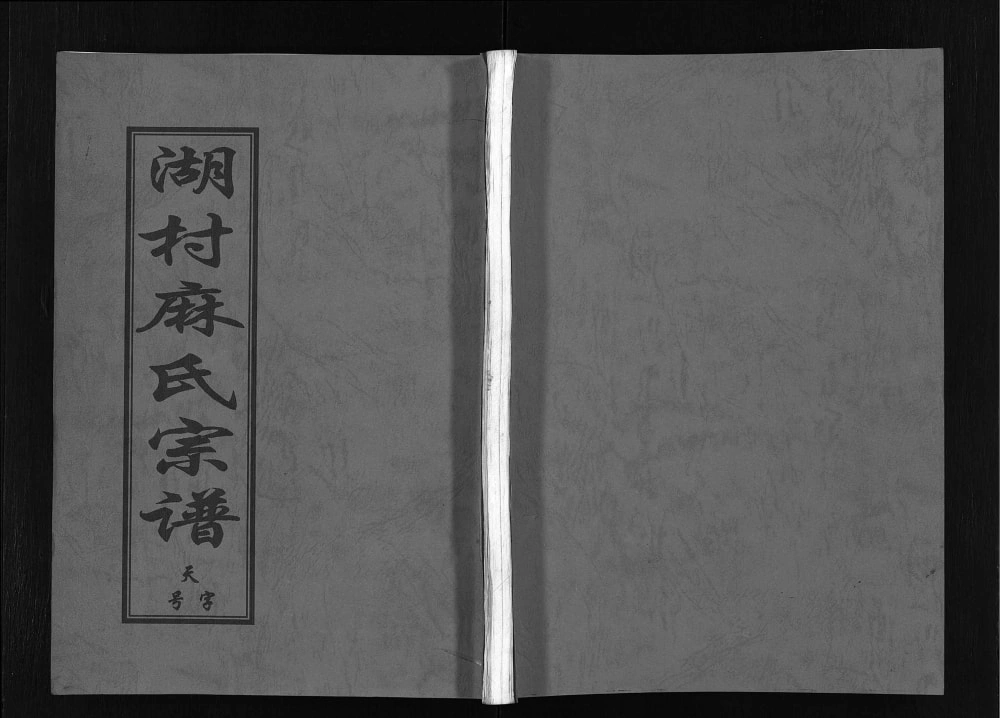 湖村麻氏宗谱
天
字号